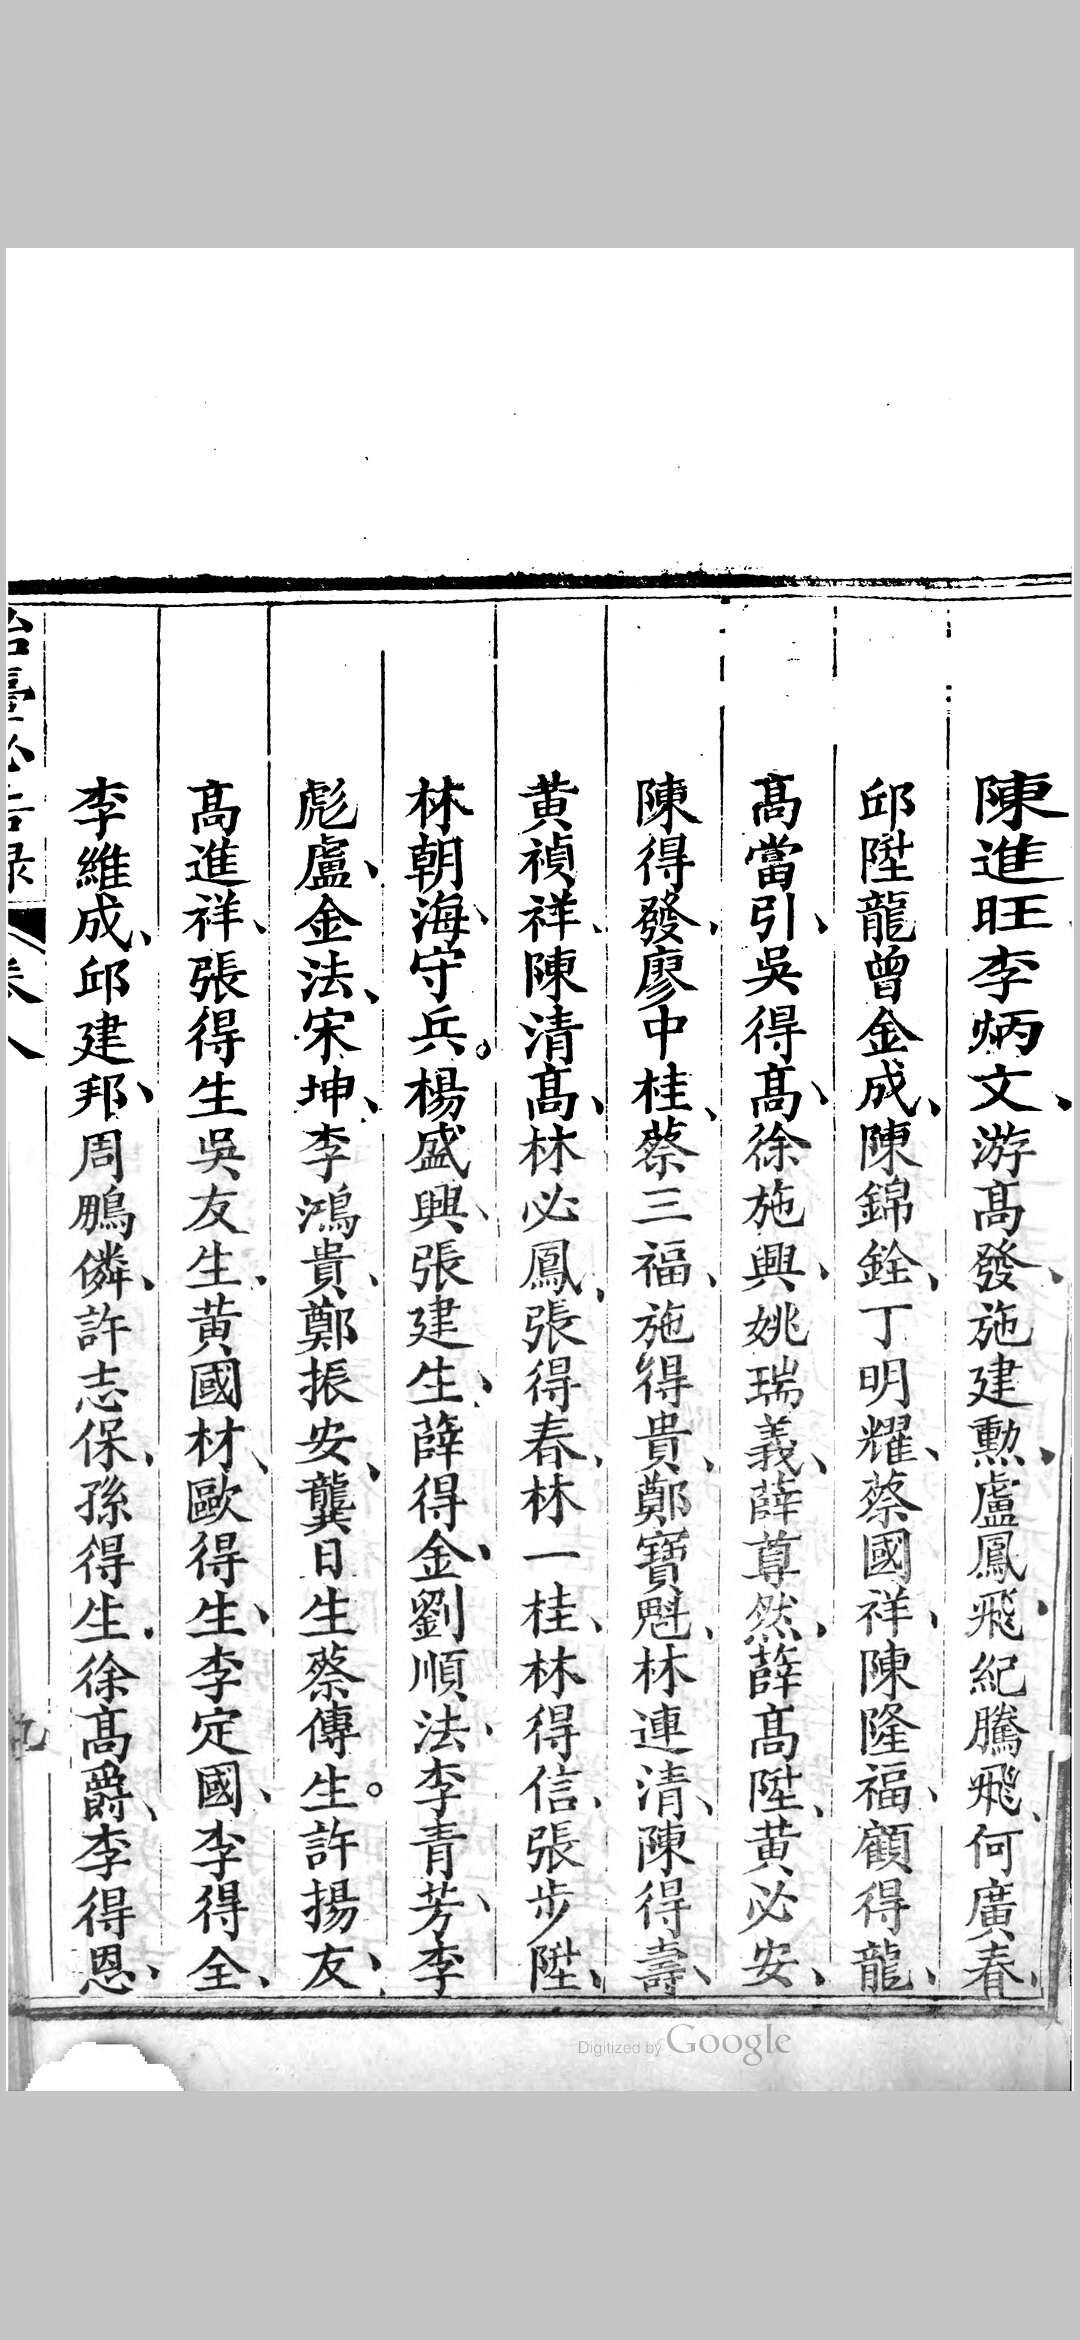 陳進旺李炳文、游高發、施建勲、盧鳳飛、紀騰飛、何廣春、
邱陞龍曾金成、陳錦銓、丁明耀、蔡國祥、陳隆福、顧得龍、
高當引、吳得高、徐施興、姚瑞義、薛尊然、薛高陞、黄必安、
陳得發、廖中桂、蔡三福、施得貴、鄭寶魁、林連清、陳得壽、
黄禎祥、陳清高、林必鳳、張得春、林一桂、林得信、張步陞、
林朝海、守兵。楊盛興、張建生、薛得金、劉順法、李青芳、李
彪、盧金法、宋坤、李鴻貴、鄭振安、龔日生蔡傳生。許揚友、
高進祥、張得生吳友生、黄國材、歐得生、李定國、李得全、
李維成、邱建邦、周鵬僯、許志保、孫得生、徐高爵、李得恩、
治臺必告録 卷八 九
Digitized by Google